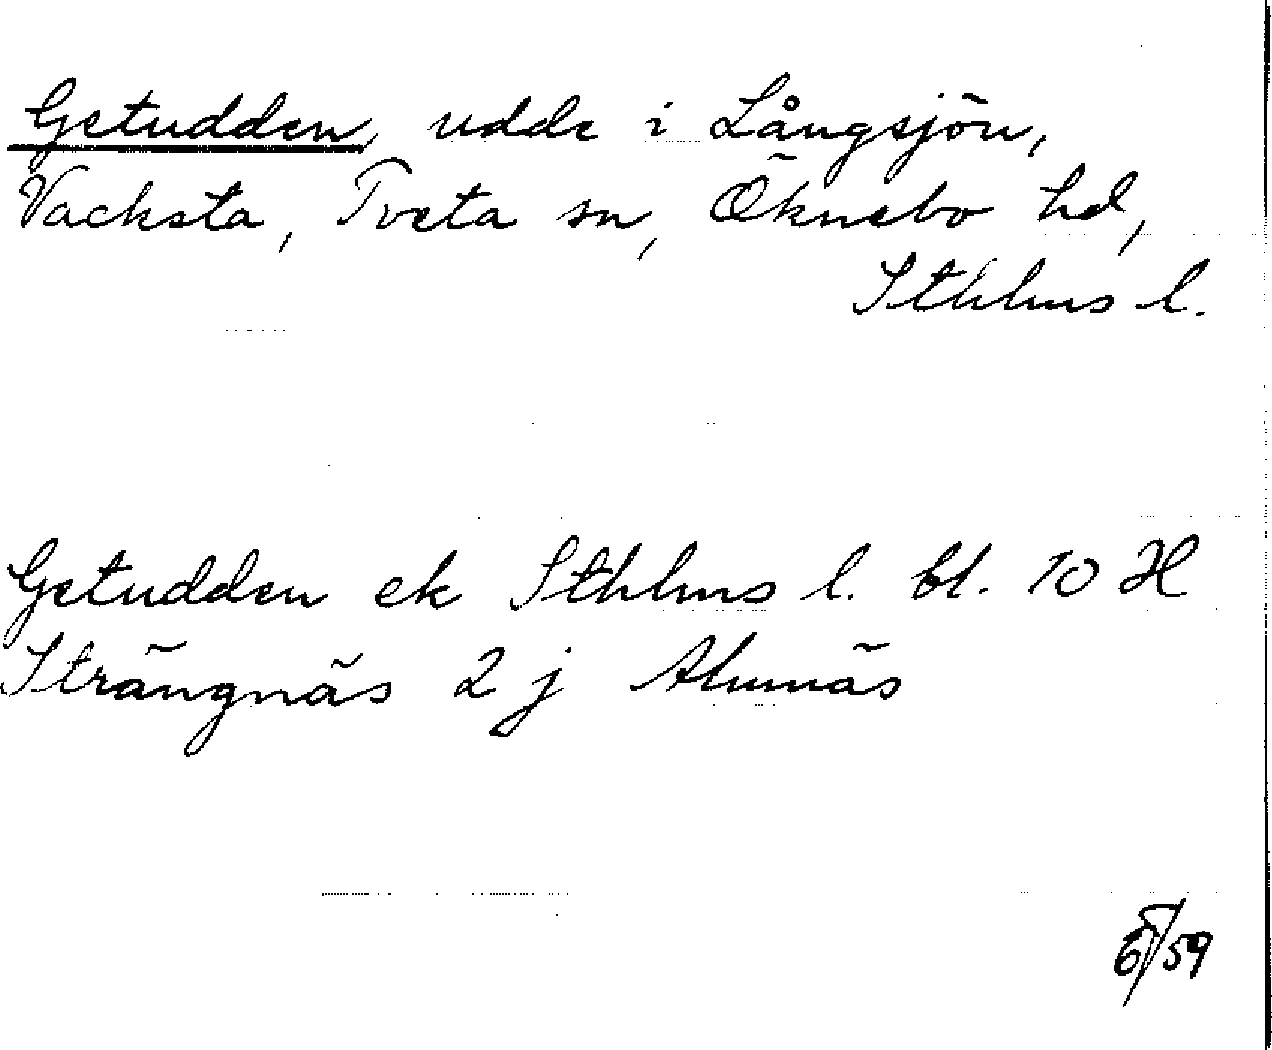 Getudden, udde i Långsjön,
Vacksta, Tveta sn, Öknebo hd,
Sthlms l.
Getudden ek Sthlms l. bl. 10 H
Strängnäs 2 j Almnäs
/59